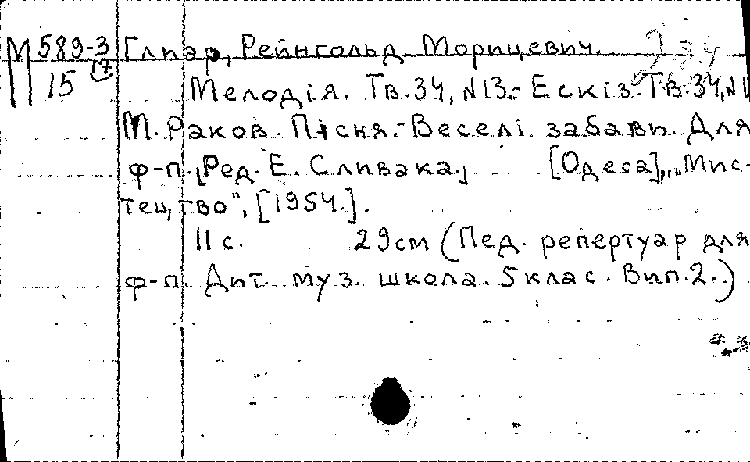 М 589-3 Глієр, Рейнгольд Морицевич.
15 (7
Мелодія. Тв.34, N13.- Ескіз. Тв.34, N1
М. Раков. Пісня.- Веселі забави. Для
ф-п. [Ред. Е. Сливака.] [Одеса], „Мис-
тецтво", [1954.].
11 с. 29см (Пед. репертуар для
ф-п. Дит. муз. школа. 5 клас. Вип.2.)